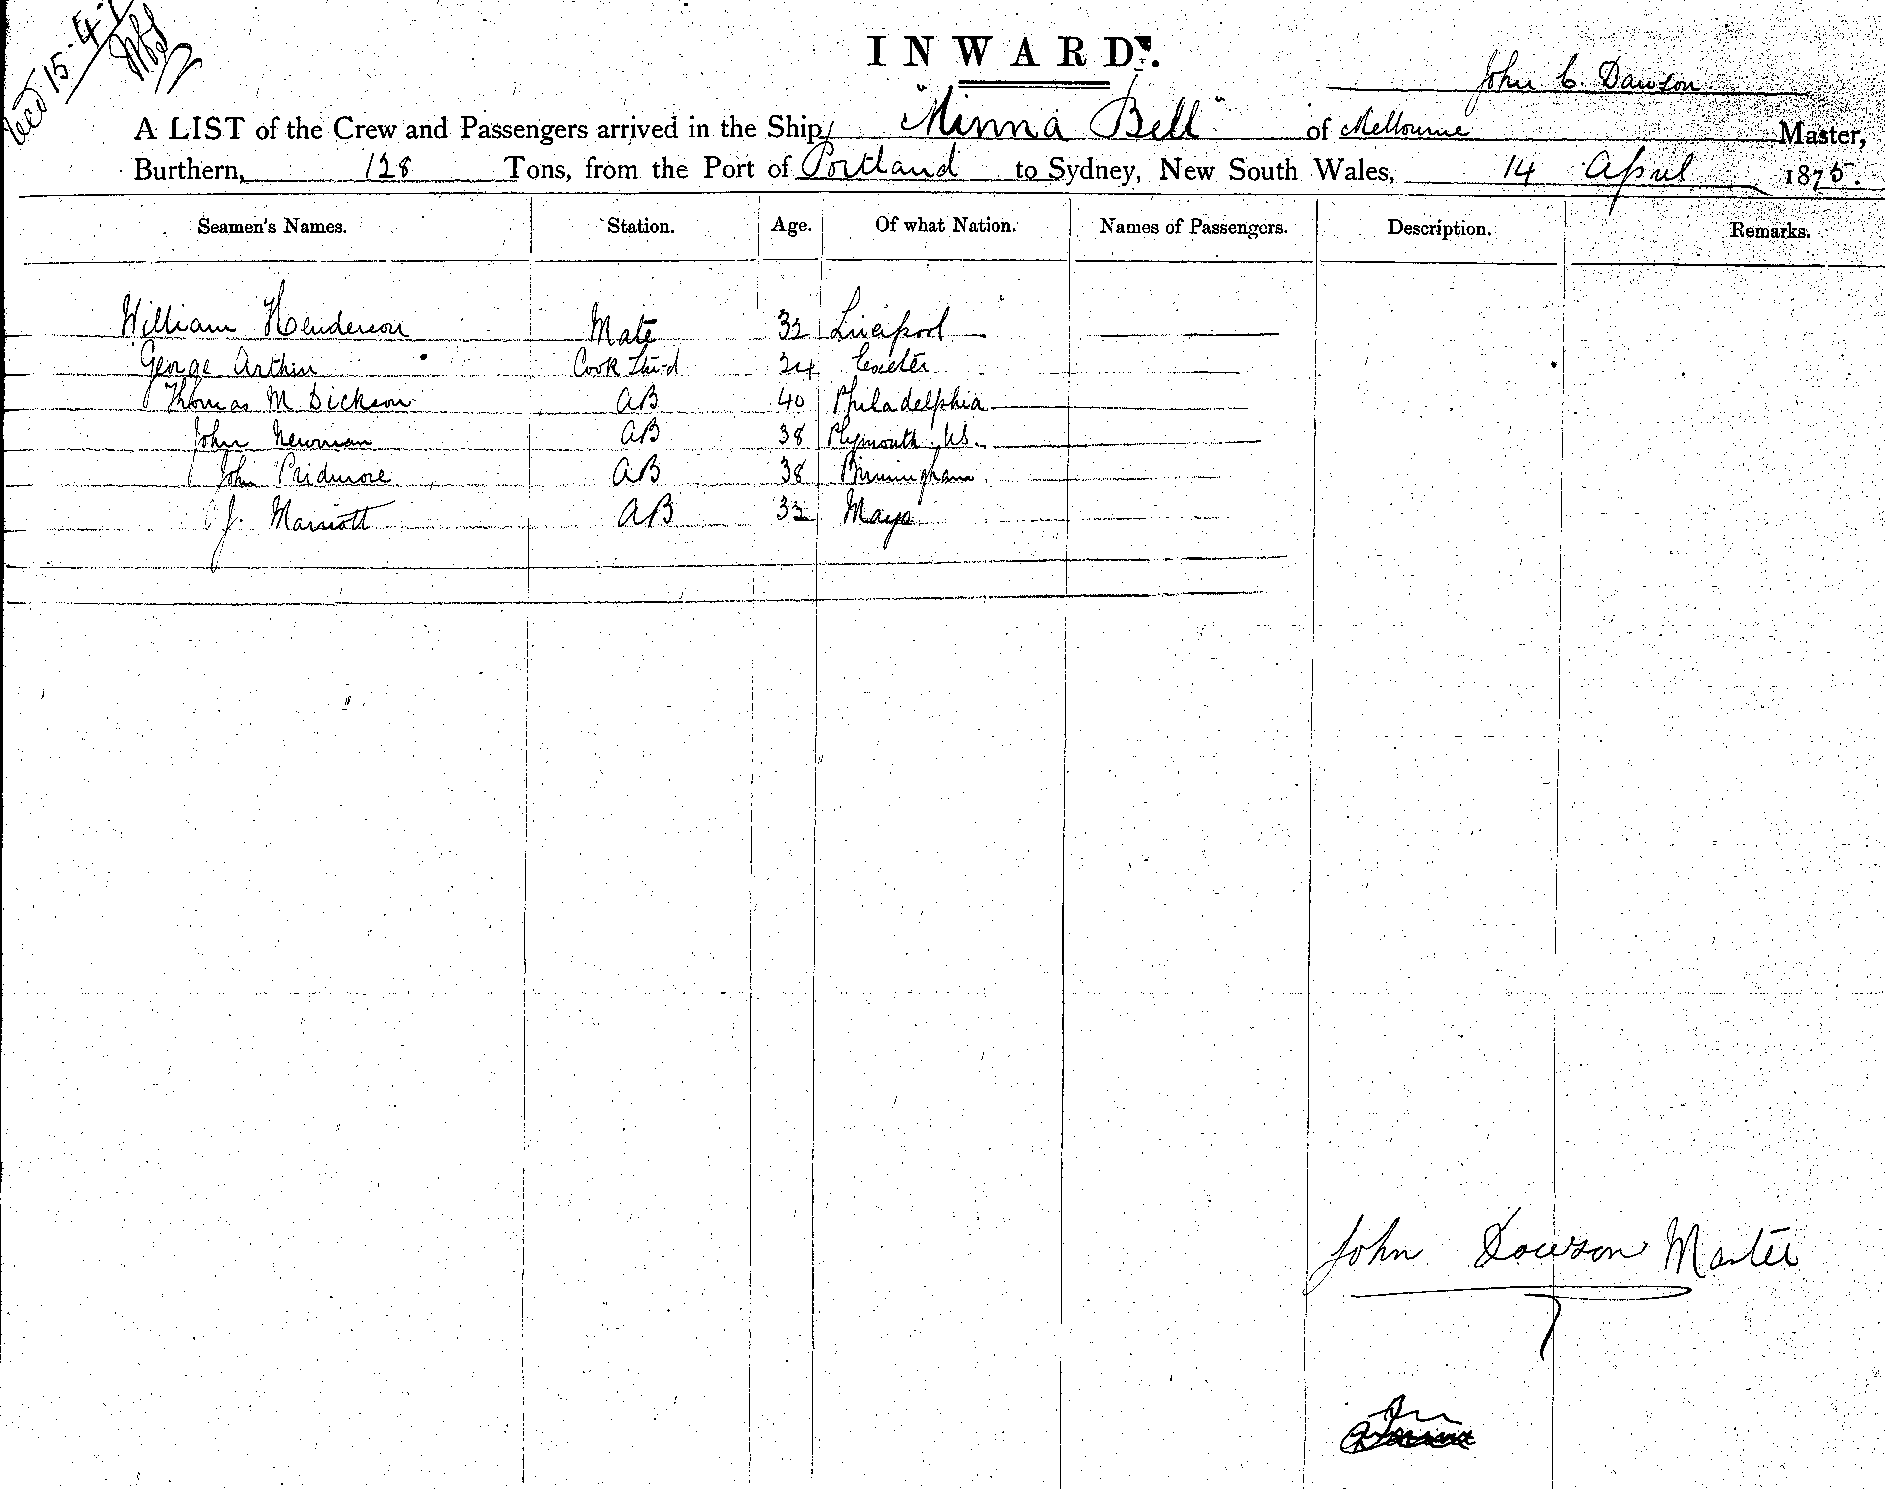 Recd 15.4.7
INWARD.
John C. Dawson
A LIST of the Crew and Passengers arrived in the Ship, "Minna Bell" of Melbourne Master,
Burthern, 128 Tons, from the Port of Portland to Sydney, New South Wales, 14 April 1875.
Seamen's Names. Station. Age. Of what Nation. Names of Passengers. Description. Remarks.
William Henderson Mate 32 Liverpool
George Arthur Cook & Stu-d 24 Exeter
Thomas M Dickson AB 40 Philadelphia
John Newman AB 38 Plymouth, US.
John Pridmore AB 38 Birmingham
J. Marriott AB 32 Mayo
John Dawson Master